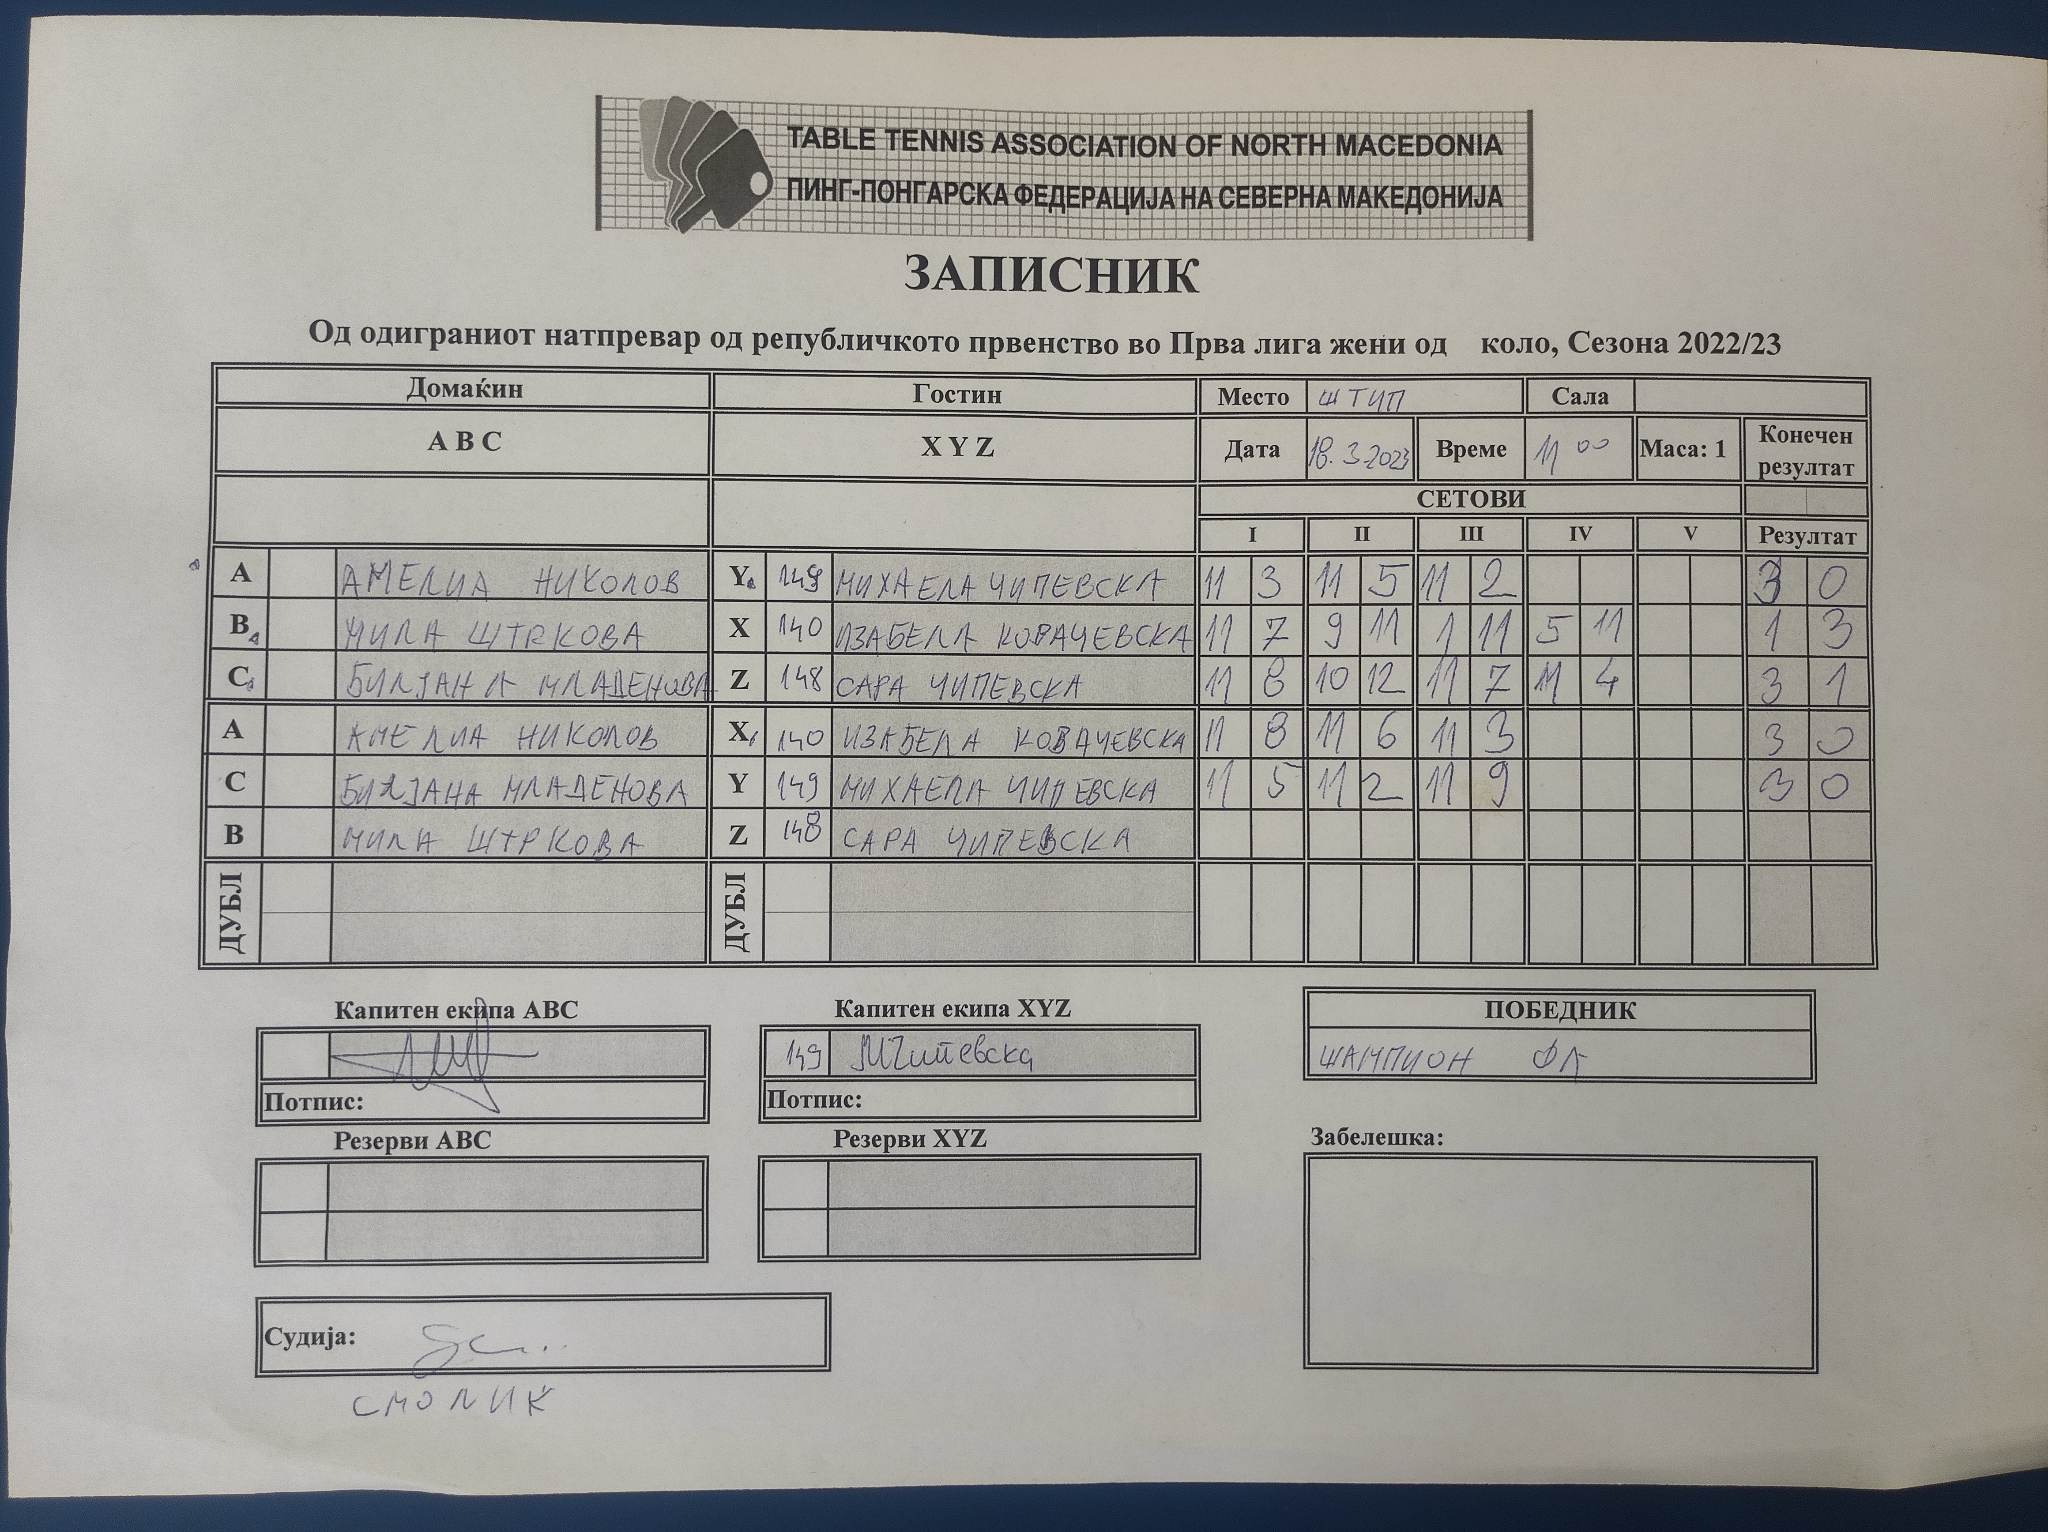 TABLE TENNIS ASSOCIATION OF NORTH MACEDONIA
ПИНГ-ПОНГАРСКА ФЕДЕРАЦИЈА НА СЕВЕРНА МАКЕДОНИЈА
ЗАПИСНИК
Од одиграниот натпревар од републичкото првенство во Прва лига жени од коло, Сезона 2022/23
Домаќин Гостин Место ШТИП Сала
A B C X Y Z Дата 18.3.2023 Време 11 00 Маса: 1 Конечен резултат
СЕТОВИ
I II III IV V Резултат
A АМЕЛИА НИКОЛОВ Y 149 МИХАЕЛА ЧИПЕВСКА 11 3 11 5 11 2 3 0
B МИЛА ШТРКОВА X 140 ИЗАБЕЛА КОВАЧЕВСКА 11 7 9 11 1 11 5 11 1 3
C БИЛЈАНА МЛАДЕНОВА Z 148 САРА ЧИПЕВСКА 11 8 10 12 11 7 11 4 3 1
A АМЕЛИА НИКОЛОВ X 140 ИЗАБЕЛА КОВАЧЕВСКА 11 8 11 6 11 3 3 0
C БИЛЈАНА МЛАДЕНОВА Y 149 МИХАЕЛА ЧИПЕВСКА 11 5 11 2 11 9 3 0
B МИЛА ШТРКОВА Z 148 САРА ЧИПЕВСКА
ДУБЛ ДУБЛ
Капитен екипа ABC Капитен екипа XYZ ПОБЕДНИК
149 МЧипевска ШАМПИОН ФЛ
Потпис: Потпис:
Резерви ABC Резерви XYZ Забелешка:
Судија:
СМОЛИЌ